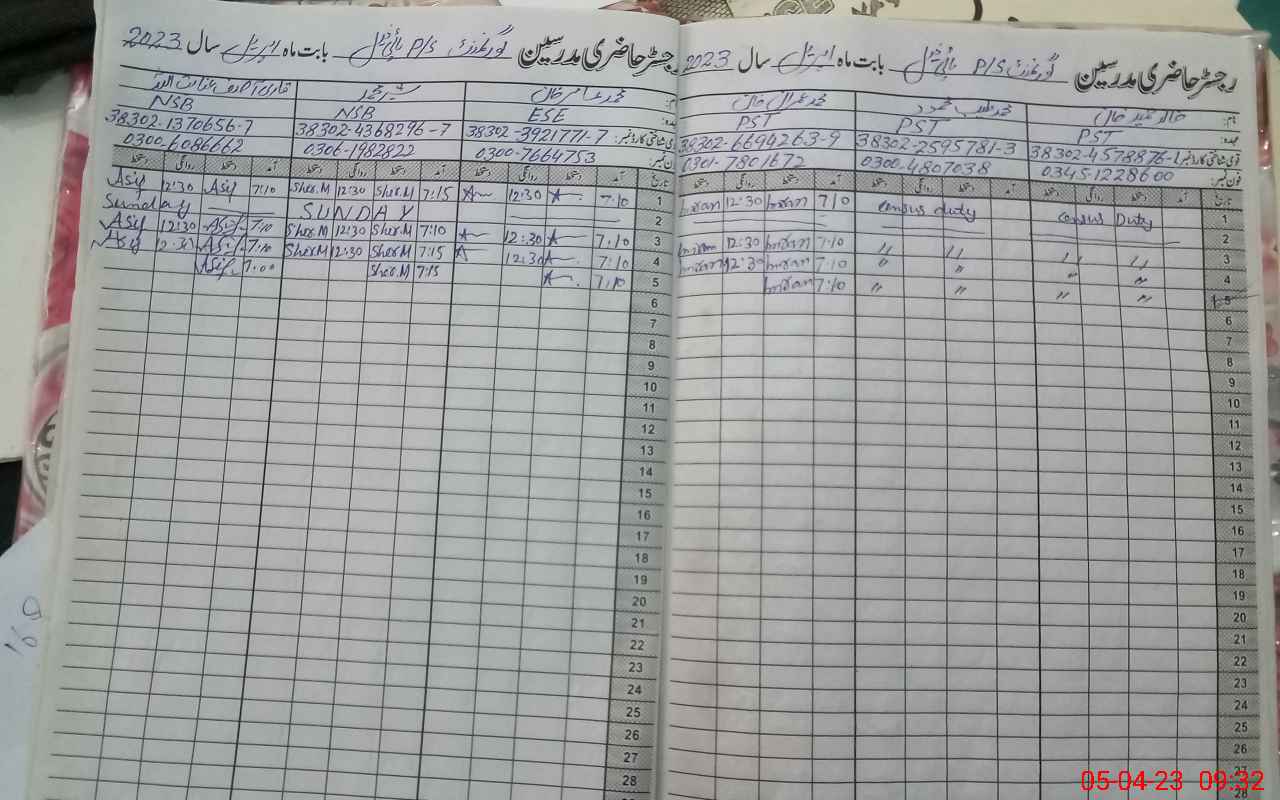 رجسٹر حاضری مدرسین گورنمنٹ P/S ہائی بابت ماہ اپریل سال 2023
نام: خالد عمیر خان محمد طیب محمود محمد عمران خان
عہدہ: PST PST PST
قومی شناختی کارڈ نمبر: 38302-4578876-1 38302-2595781-3 38302-6694263-9
فون نمبر: 0345-1228600 0300-4807038 0301-7801672
تاریخ آمد دستخط روانگی دستخط آمد دستخط روانگی دستخط آمد دستخط روانگی دستخط
1 Census Duty Census duty 7:10 Imran 12:30 Imran
2
3 " " " " 7:10 Imran 12:30 Imran
4 " " " " 7:10 Imran 12:30 Imran
5 " " " " 7:10 Imran
6
7
8
9
10
11
12
13
14
15
16
17
18
19
20
21
22
23
24
25
26
27
28
رجسٹر حاضری مدرسین گورنمنٹ P/S ہائی بابت ماہ اپریل سال 2023
نام: محمد عامر خان شیر محمد قاری آصف
عہدہ: ESE NSB NSB
قومی شناختی کارڈ نمبر: 38302-3921771-7 38302-4368296-7 38302-1370656-7
فون نمبر: 0300-7664753 0306-1982822 0300-6086662
تاریخ آمد دستخط روانگی دستخط آمد دستخط روانگی دستخط آمد دستخط روانگی دستخط
1 7:10 12:30 7:15 Sher.M 12:30 Sher.M 7:10 Asif 12:30 Asif
2 SUNDAY Sunday
3 7:10 12:30 7:10 Sher.M 12:30 Sher.M 7:10 Asif 12:30 Asif
4 7:10 12:30 7:15 Sher.M 12:30 Sher.M 7:10 Asif 12:30 Asif
5 7:10 7:15 Sher.M 7:00 Asif
6
7
8
9
10
11
12
13
14
15
16
17
18
19
20
21
22
23
24
25
26
27
28
05-04-23 09:32